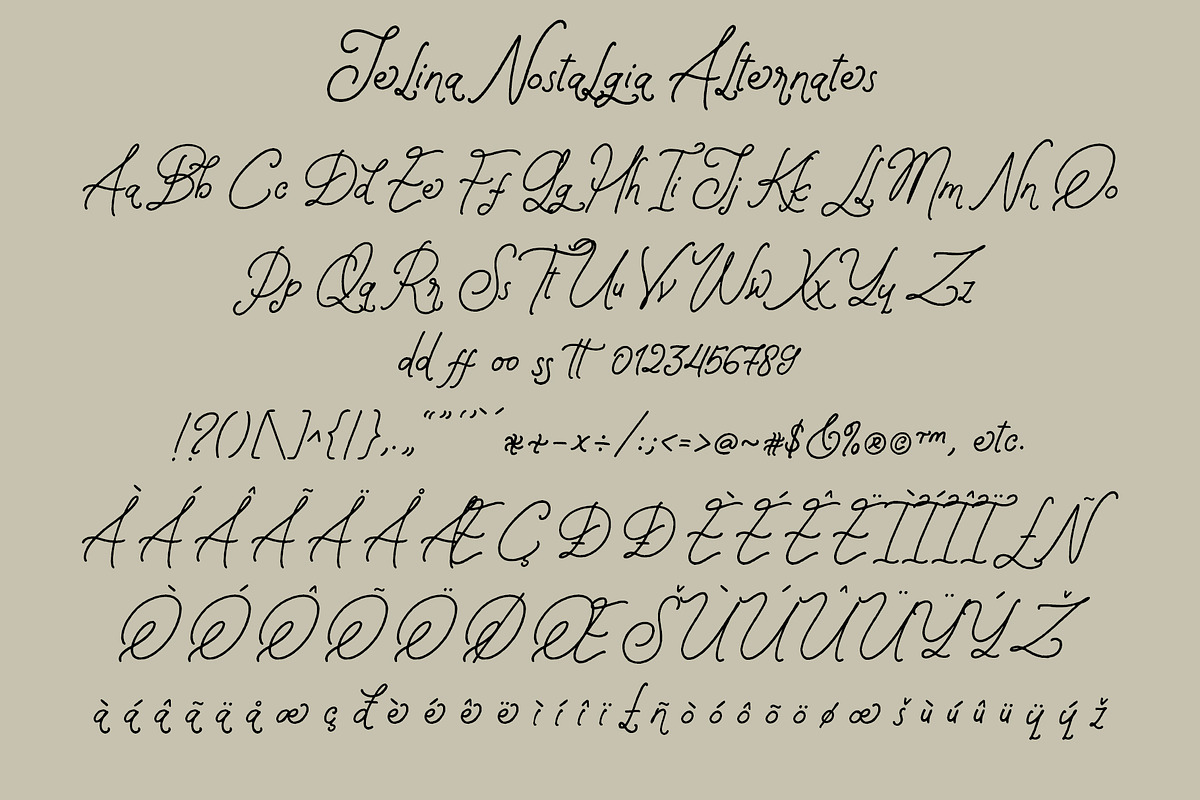 Jelina Nostalgia Alternates
Aa Bb Cc Dd Ee Ff Gg Hh Ii Jj Kk Ll Mm Nn Oo
Pp Qq Rr Ss Tt Uu Vv Ww Xx Yy Zz
dd ff oo ss tt 0123456789
!?()[\]^{|},.„“”‘’`´ +-×÷/:;<=>@~#$&%®©™, etc.
À Á Â Ã Ä Å Æ Ç Ð Đ È É Ê Ë Ì Í Î Ï Ł Ñ
Ò Ó Ô Õ Ö Ø Œ Š Ù Ú Û Ü Ÿ Ý Ž
à á â ã ä å æ ç đ è é ê ë ì í î ï ł ñ ò ó ô õ ö ø œ š ù ú û ü ÿ ý ž